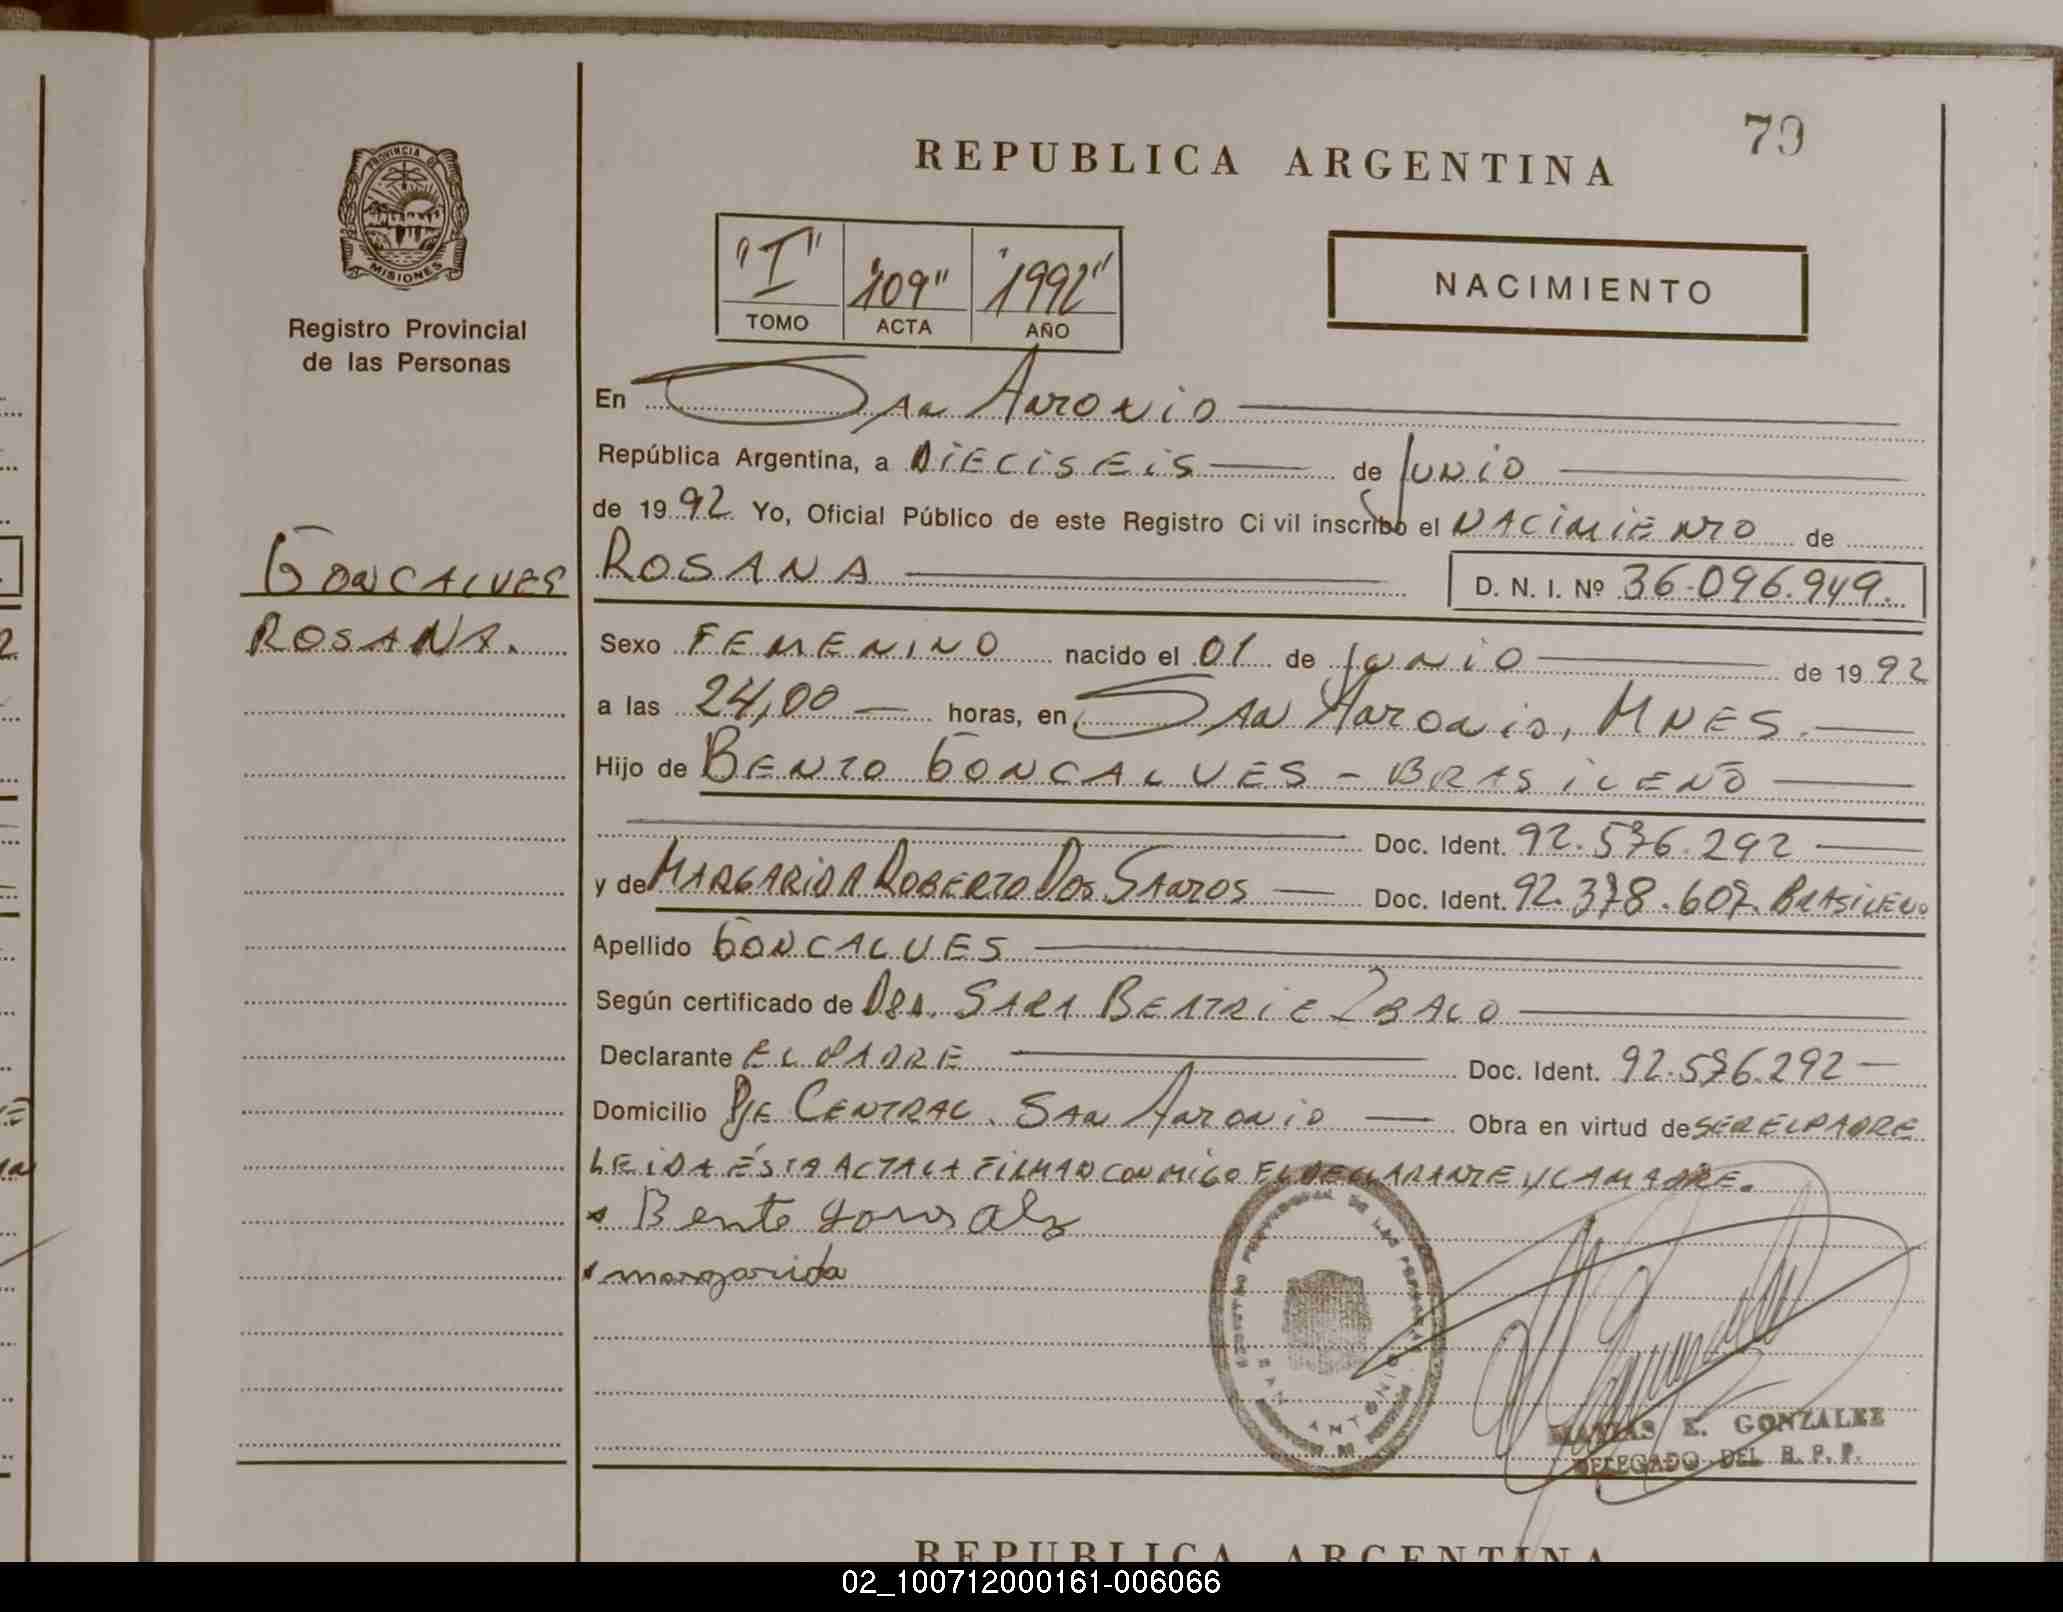 79
REPUBLICA ARGENTINA
PROVINCIA DE
MISIONES
Registro Provincial
de las Personas
"I" "109" "1992"
TOMO ACTA AÑO
NACIMIENTO
En San Antonio
República Argentina, a DIECISEIS de JUNIO
de 1992 Yo, Oficial Público de este Registro Ci vil inscribo el NACIMIENTO de
GONCALVES
ROSANA.
ROSANA D. N. I. Nº 36.096.949.
Sexo FEMENINO nacido el 01 de JUNIO de 1992
a las 24,00 horas, en SAN ANTONIO, MNES.
Hijo de BENTO GONCALVES - BRASILEÑO
Doc. Ident. 92.576.292
y de MARGARIDA ROBERTO DOS SANTOS Doc. Ident. 92.378.607. BRASILENO
Apellido GONCALVES
Según certificado de DRA. SARA BEATRIE ZBALO
Declarante EL PADRE Doc. Ident. 92.576.292
Domicilio PJE CENTRAL. SAN ANTONIO Obra en virtud de SER EL PADRE
LEIDA ÉSTA ACTA LA FILMAN CONMIGO EL DECLARANTE Y LA MADRE.
Bento
margarida
SAN ANTONIO
E. GONZALEZ
DELEGADO DEL R. P. P.
REPUBLICA ARGENTINA
02_100712000161-006066